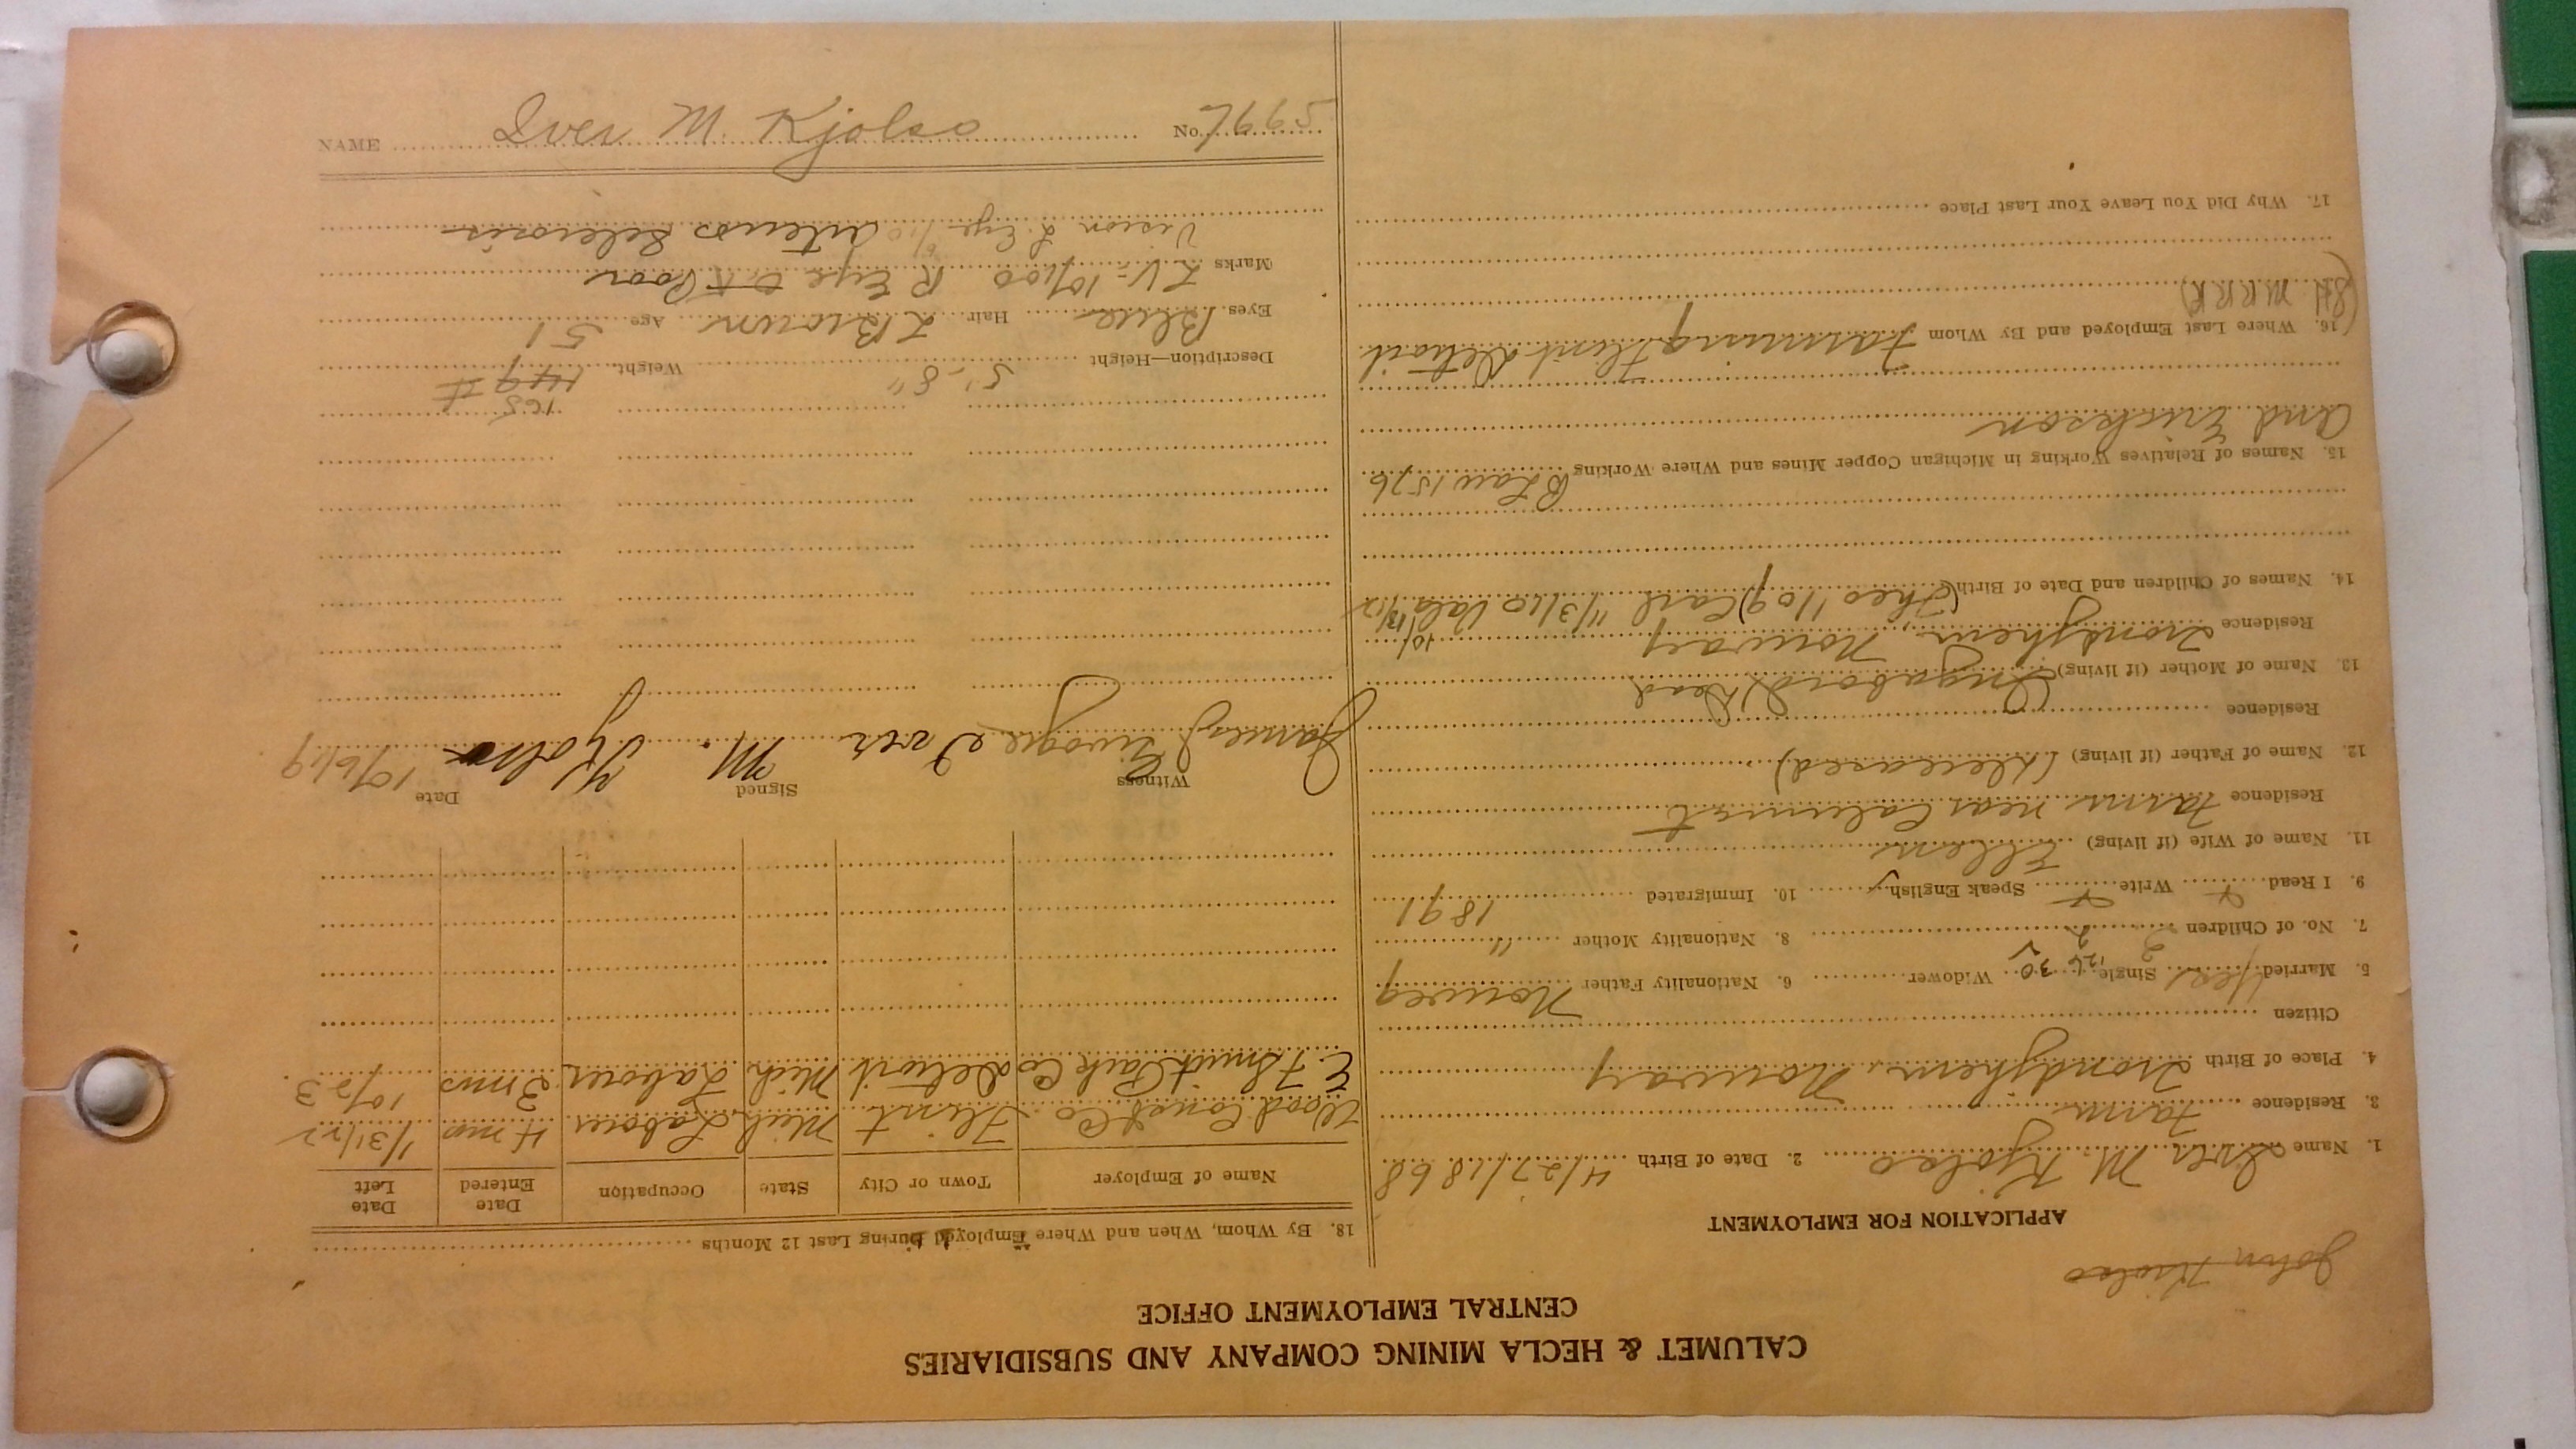 CALUMET & HECLA MINING COMPANY AND SUBSIDIARIES
CENTRAL EMPLOYMENT OFFICE
John Kjolso
APPLICATION FOR EMPLOYMENT
1. Name Iver M. Kjolso 2. Date of Birth 4/27/1868
3. Residence Farm
4. Place of Birth Trondjhem, Norway
Citizen
5. Married Yes Single Widower 6. Nationality Father Norweg
7. No. of Children 2 8. Nationality Mother "
9. I Read Y Write Y Speak English Y 10. Immigrated 1891
11. Name of Wife (if living) Ellen
Residence Farm near Calumet
12. Name of Father (if living) (Deceased)
Residence
13. Name of Mother (if living) Dead
Residence Trondjhem, Norway
14. Names of Children and Date of Birth (Theo 1/09) Carl 11/3/10 10/13/12
15. Names of Relatives Working in Michigan Copper Mines and Where Working B Law 1526
And. Erickson
16. Where Last Employed and By Whom Farming Flint Detroit
M.R.R.R)
17. Why Did You Leave Your Last Place
18. By Whom, When and Where Employed During Last 12 Months
Name of Employer Town or City State Occupation Date Entered Date Left
Wood Co Flint Mich Laborer 4 mos 1/31/22
E. F. Smith Co Detroit Mich Laborer 2 mos 10/23.
Witness James Signed Iver M. Kjolso Date 10/6/19
165
Description—Height 5'-8" Weight 149 #
Eyes Blue Hair L Brown Age 51
Marks LV-10/100 R Eye OK Poor
Vision L. Eye /10 Arterios Sclerosis
NAME Iver M. Kjolso No. 7695